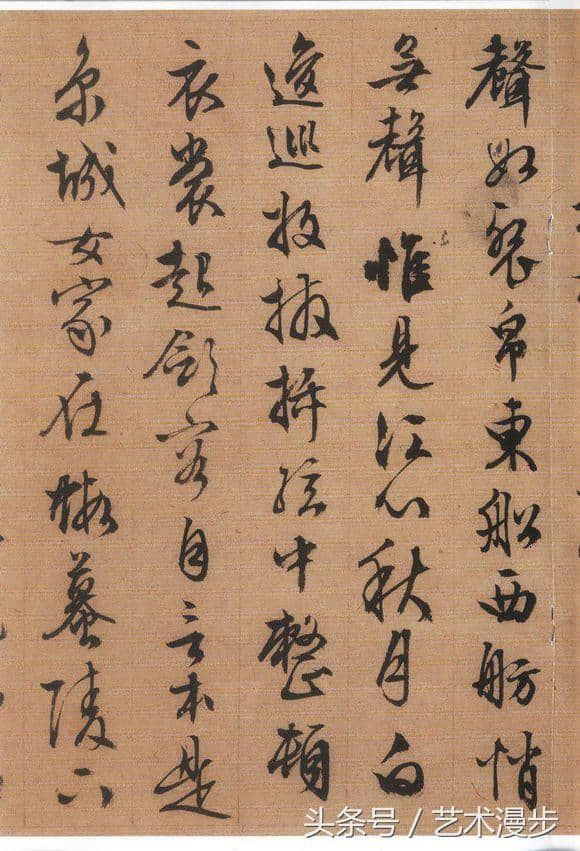 聲如裂帛東船西舫悄
無聲惟見江心秋月白
逡巡放撥插弦中整頓
衣裳起斂容自言本是
京城女家在蝦蟇陵下
头条号 / 艺术漫步